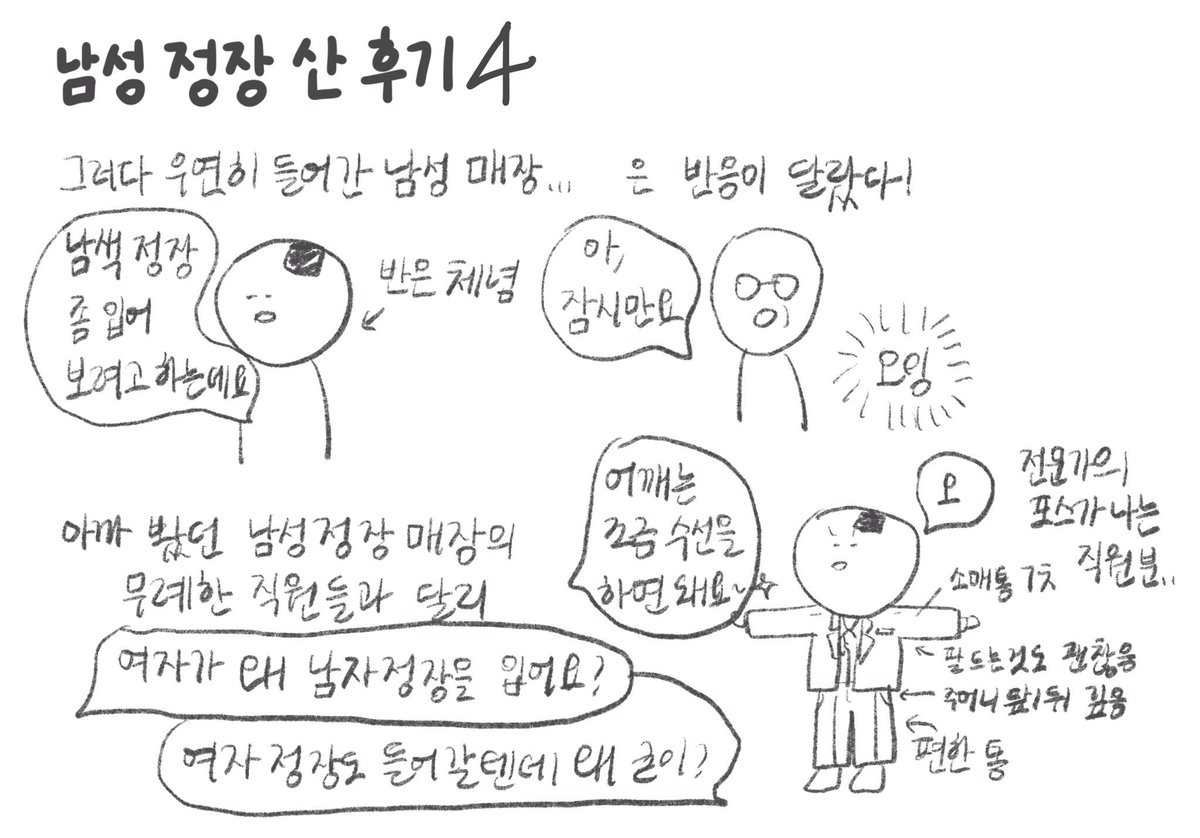 남성 정장 산 후기 4
그러다 우연히 들어간 남성 매장... 은 반응이 달랐다!
남색 정장
좀 입어
보려고 하는데요
반은 체념
아,
잠시만요
오잉
아까 봤던 남성정장 매장의
무례한 직원들과 달리
여자가 왜 남자정장을 입어요?
여자 정장도 들어갈텐데 왜 굳이?
어깨는
조금 수선을
하면 돼요~
오
전문가의
포스가 나는
직원분..
소매통
팔 드는것도 괜찮음
주머니 앞뒤 깊음
편한 통